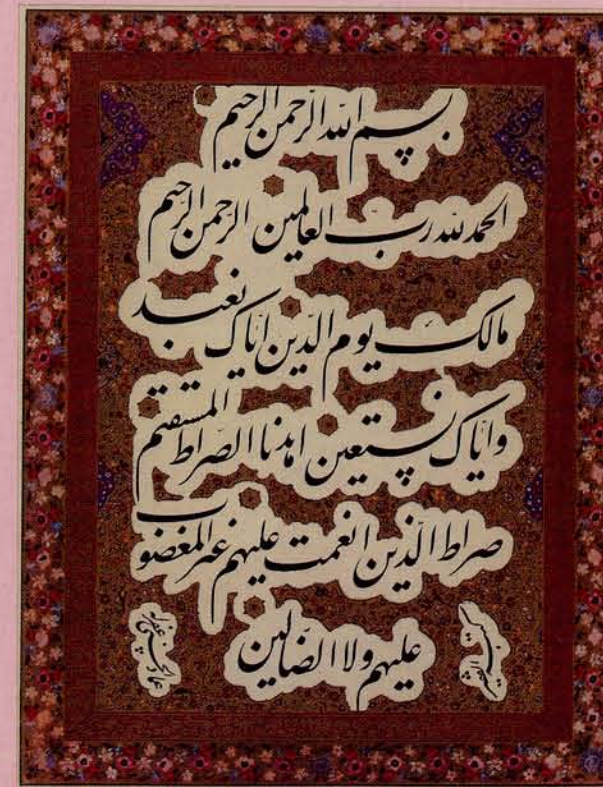 بسم الله الرّحمن الرّحیم
الحمد لله ربّ العالمین الرّحمن الرّحیم
مالک یوم الدّین ایّاک نعبد
وایّاک نستعین اهدنا الصّراط المستقیم
صراط الّذین انعمت علیهم غیر المغضوب
علیهم ولا الضّالّین